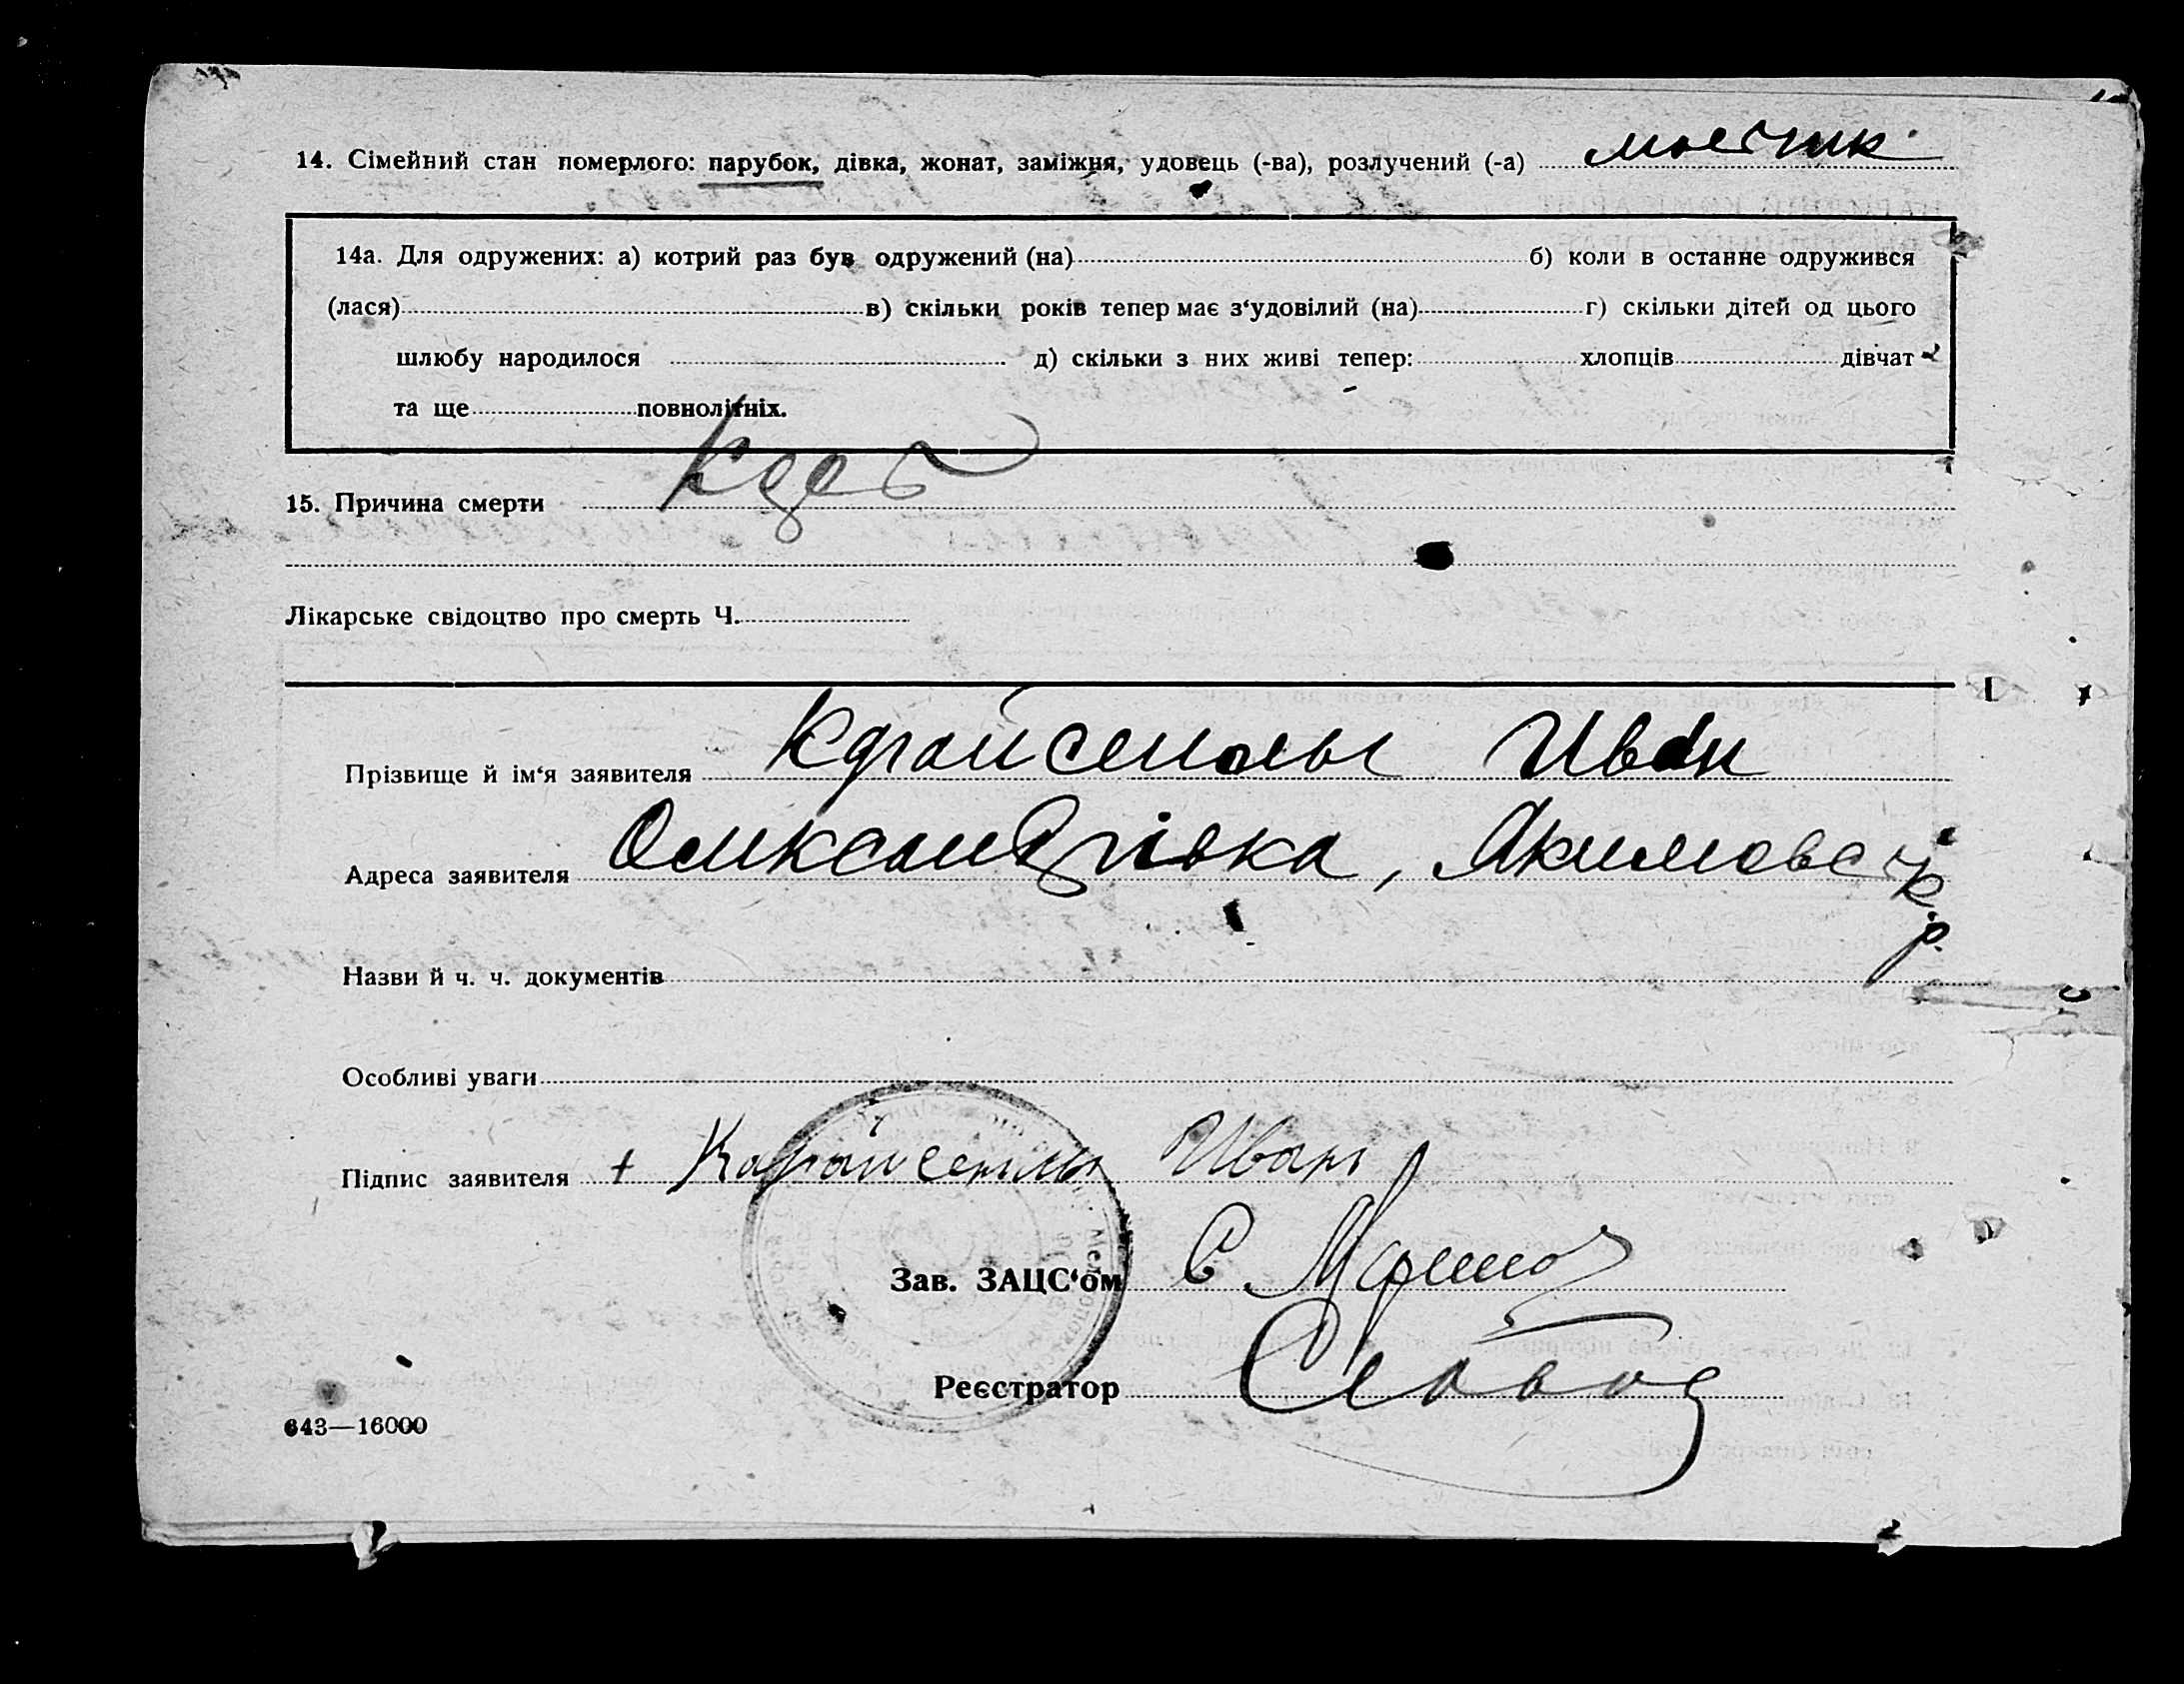 14. Сімейний стан померлого: парубок, дівка, жонат, заміжня, удовець (-ва), розлучений (-а)
14а. Для одружених: а) котрий раз був одружений (на) б) коли в останнє одружився
(лася) в) скільки років тепер має з'удовілий (на) г) скільки дітей од цього
шлюбу народилося д) скільки з них живі тепер: хлопців дівчат
та ще повнолітніх.
15. Причина смерти
Лікарське свідоцтво про смерть Ч.
Прізвище й ім'я заявителя Иван
Адреса заявителя Олександрівка, Якимовськ. р.
Назви й ч. ч. документів
Особливі уваги
Підпис заявителя + Иван
Зав. ЗАЦС'ом
Реєстратор
643—16000